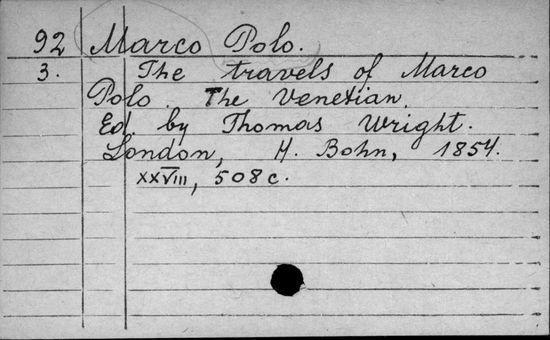 92 Marco Polo.
3. The travels of Marco
Polo. The Venetian.
Ed. by Thomas Wright.
London, H. Bohn, 1854.
XXVIII, 508 c.